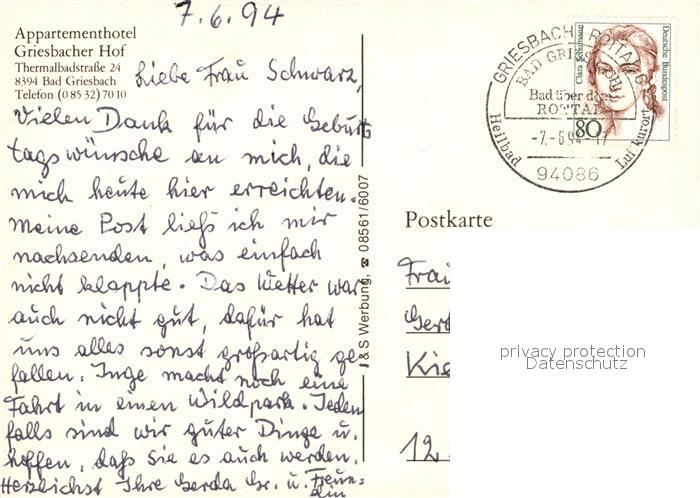 7.6.94
Appartementhotel
Griesbacher Hof
Thermalbadstraße 24
8394 Bad Griesbach
Telefon (0 85 32) 70 10
Liebe Frau Schwarz,
Vielen Dank für die Geburts
tagswünsche an mich, die
mich heute hier erreichten.
Meine Post ließ ich mir
nachsenden, was einfach
nicht klappte. Das Wetter war
auch nicht gut, dafür hat
uns alles sonst großartig ge-
fallen. Inge macht noch eine
Fahrt in einen Wildpark. Jeden
falls sind wir guter Dinge u.
hoffen, daß Sie es auch werden.
Herzlichst Ihre Gerda Gr. u. Freun-
din
I & S Werbung, ☎ 08561/6007
GRIESBACH I. ROTTAL
BAD GRIES
Bad über dem
ROTTAL
-7.-6.94-17
Heilbad
Luftkurort
94086
Clara Schumann
Deutsche Bundespost
80
Postkarte
Frau
Gerd
Kie
12
privacy protection
Datenschutz